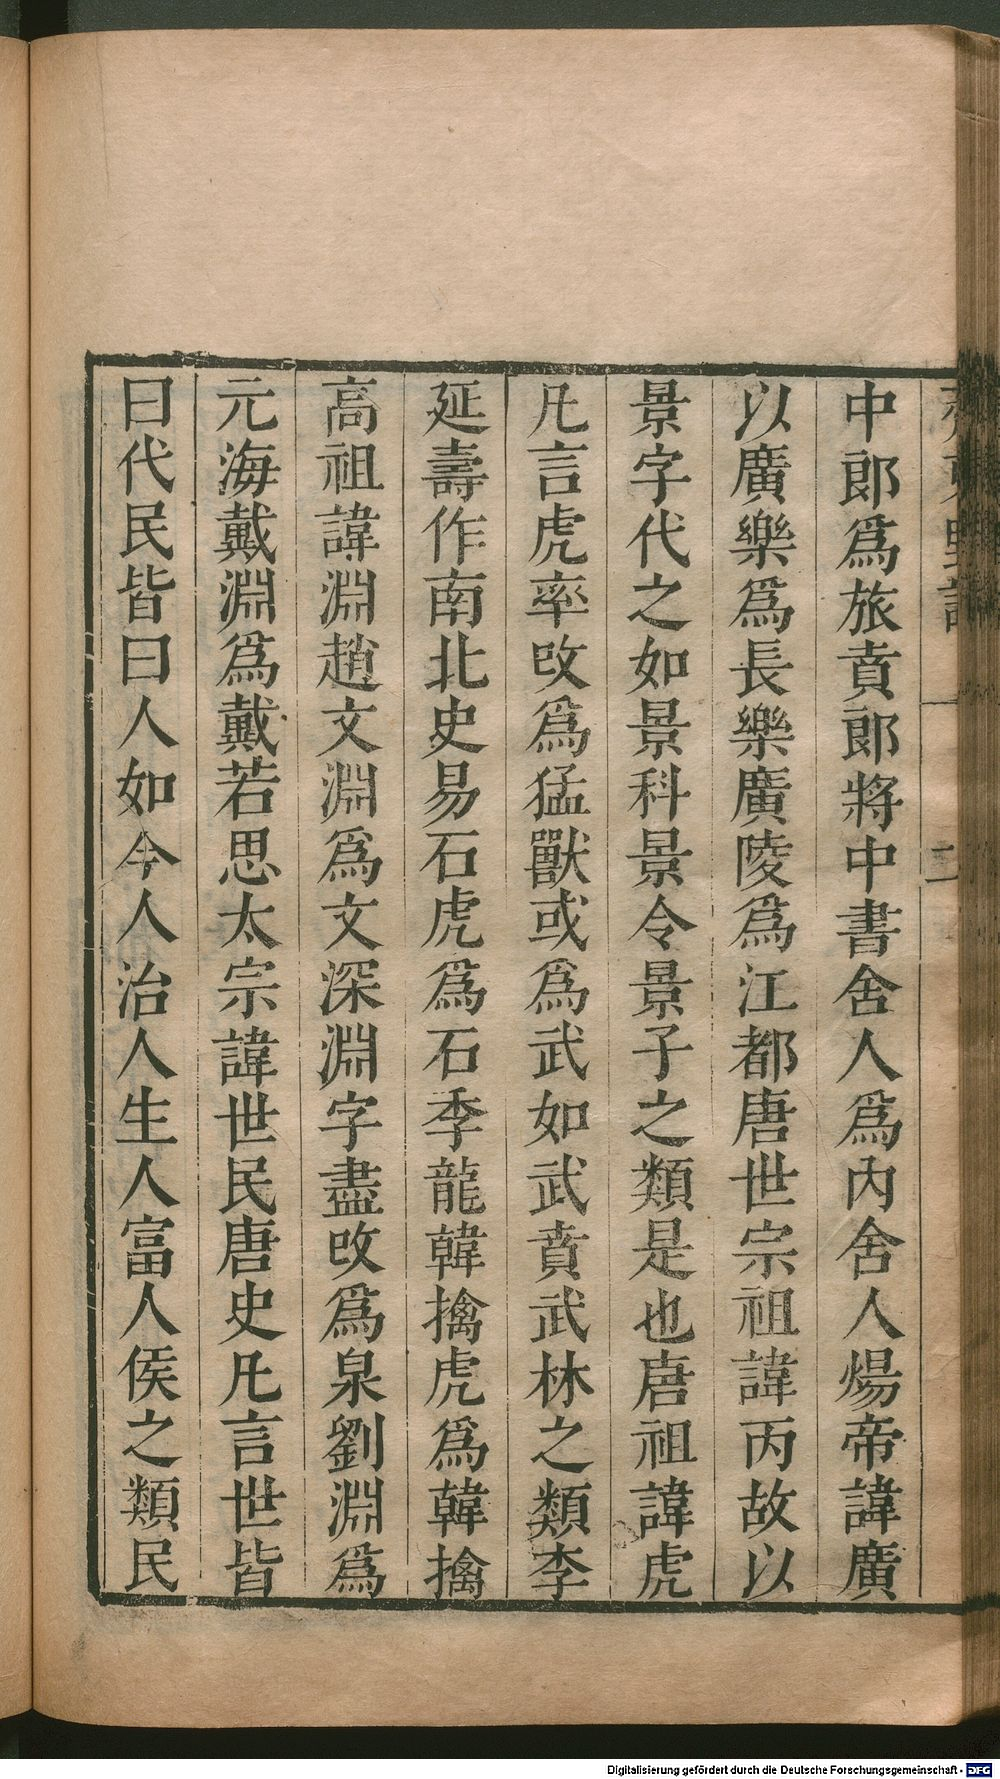 中郎爲旅賁郎將中書舍人爲内舍人煬帝諱廣
以廣樂爲長樂廣陵爲江都唐世宗祖諱丙故以
景字代之如景科景令景子之類是也唐祖諱虎
凡言虎率改爲猛獸或爲武如武賁武林之類李
延壽作南北史易石虎爲石季龍韓擒虎爲韓擒
高祖諱淵趙文淵爲文深淵字盡改爲泉劉淵爲
元海戴淵爲戴若思太宗諱世民唐史凡言世皆
曰代民皆曰人如今人治人生人富人侯之類民
Digitalisierung gefördert durch die Deutsche Forschungsgemeinschaft - DFG